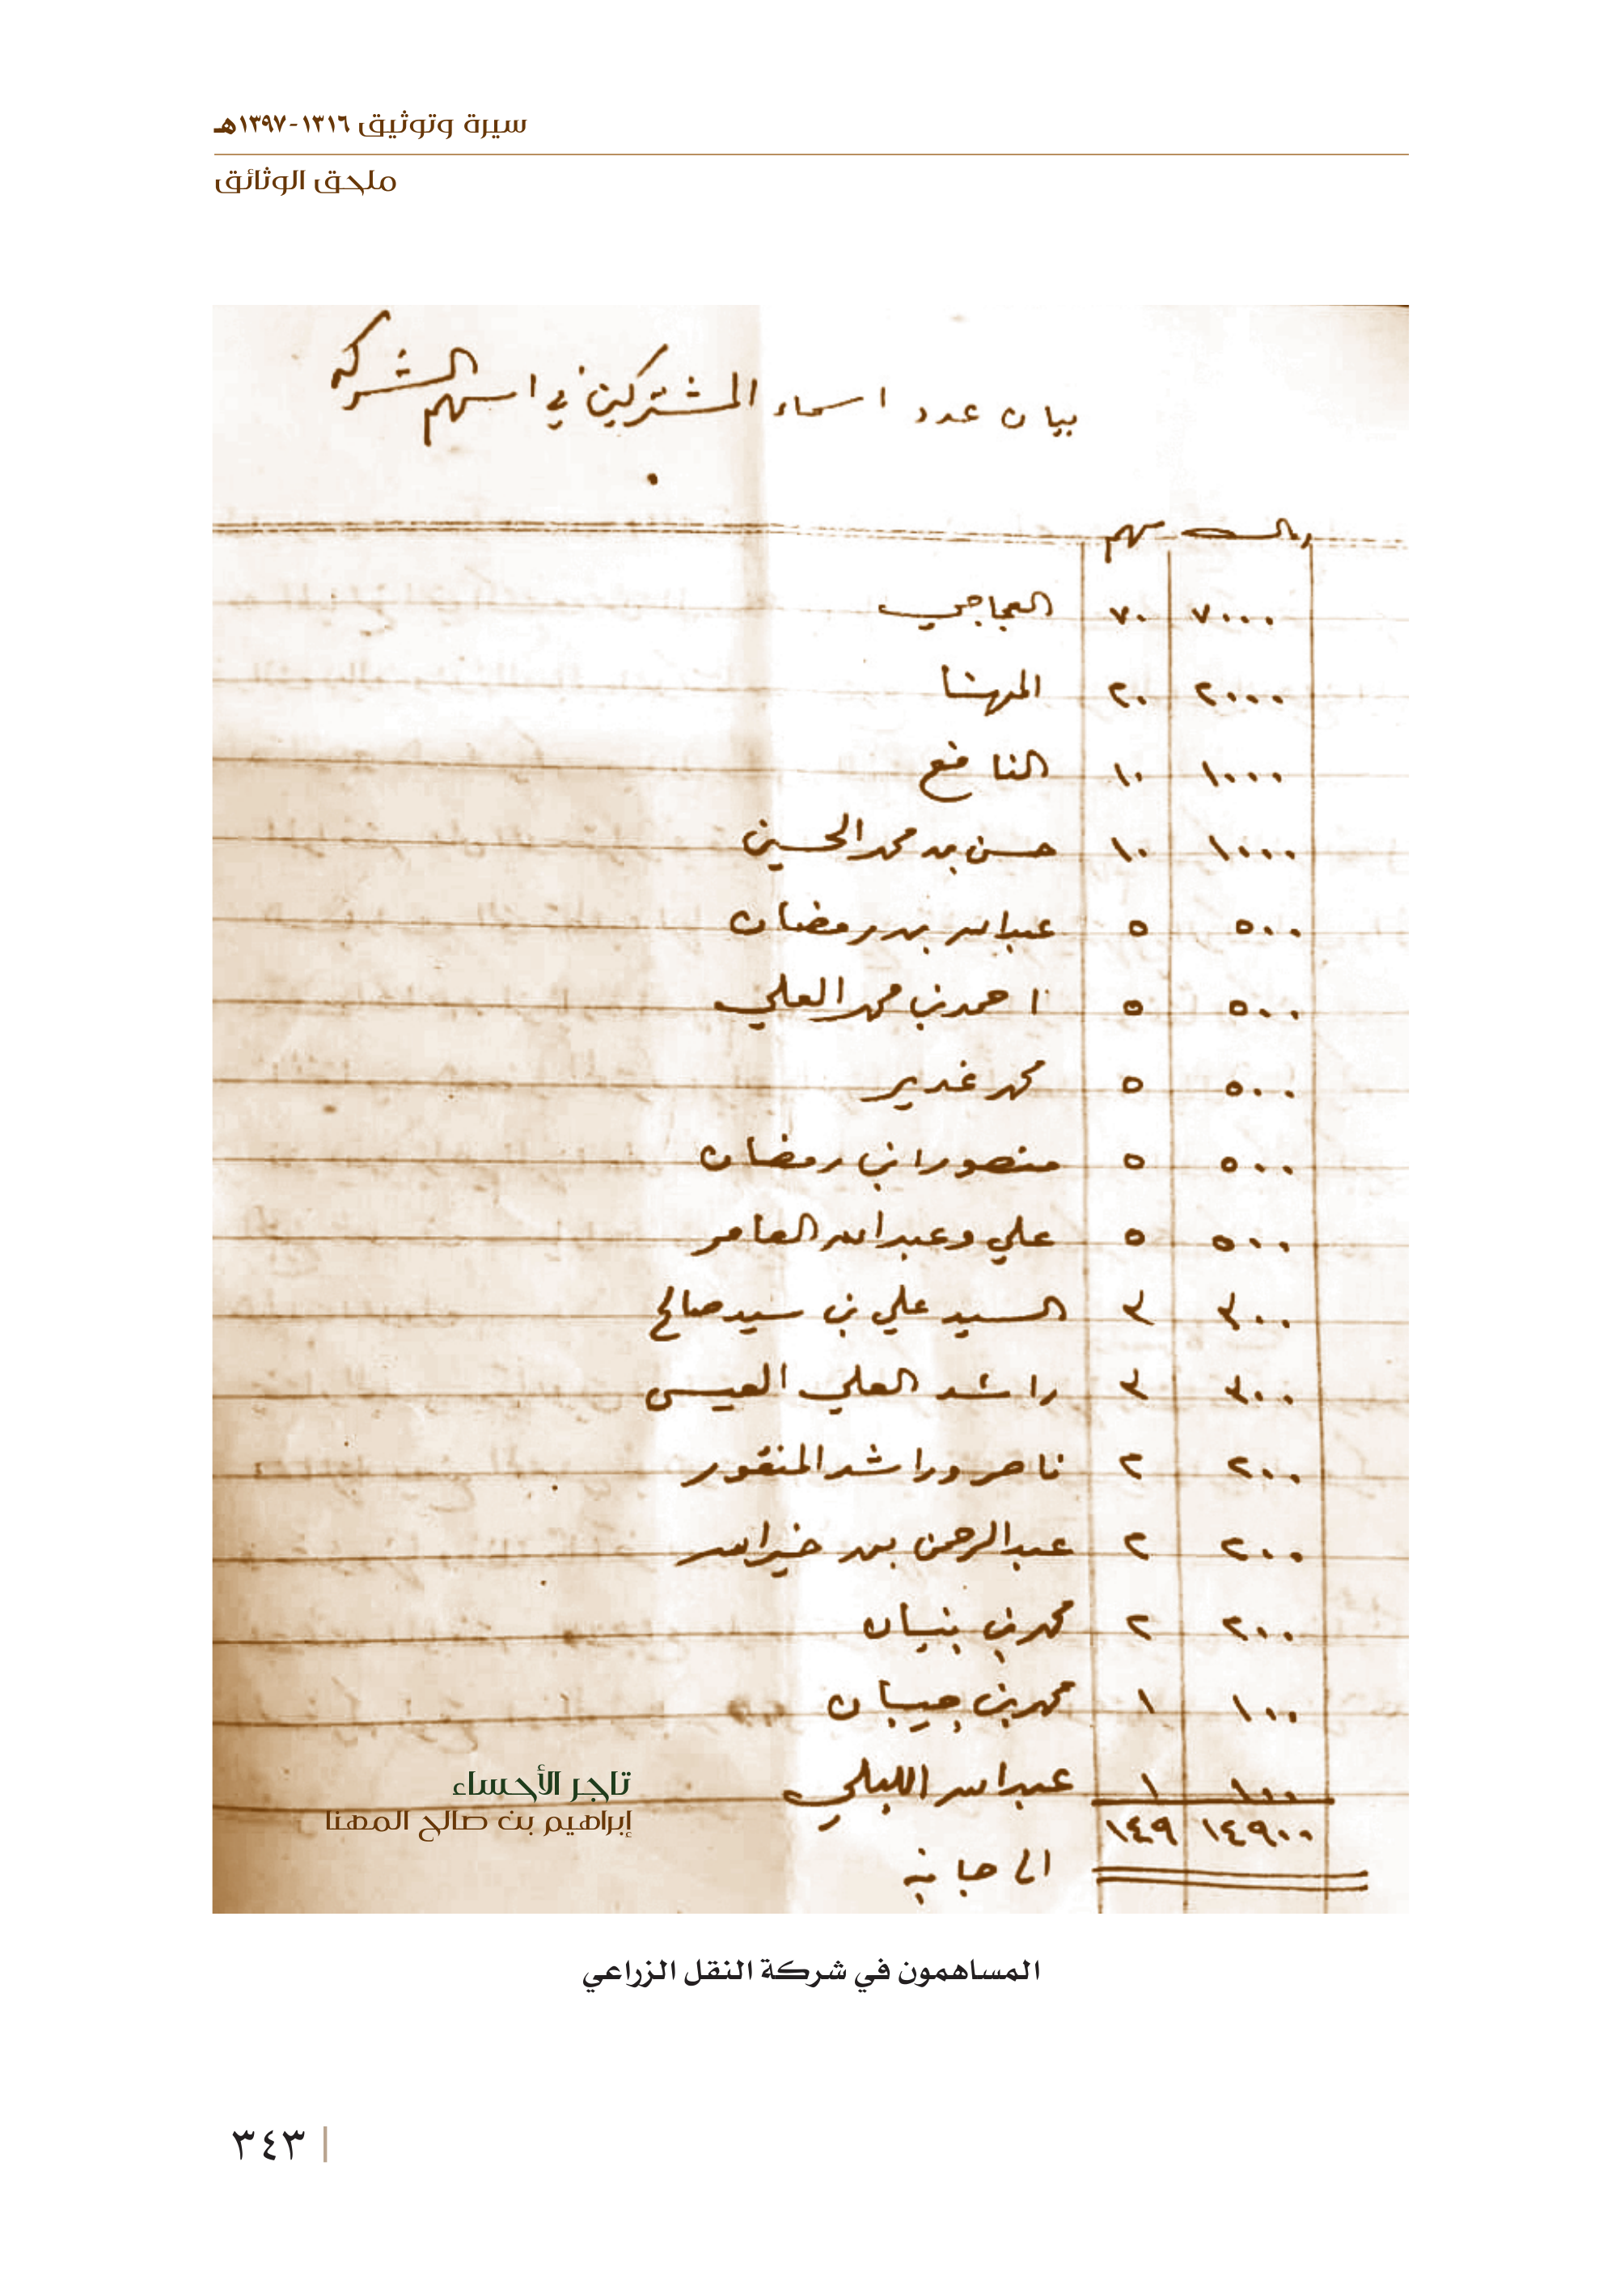 سيرة وتوثيق ١٣١٦-١٣٩٧هـ
ملحق الوثائق
بيان عدد اسماء المشتركين في اسهم الشركه
ريال سهم
٧٠٠٠ ٧٠ العجاجي
٢٠٠٠ ٢٠ المهنا
١٠٠٠ ١٠ النافع
١٠٠٠ ١٠ حسن بن محمد الحسين
٥٠٠ ٥ عبدالله بن رمضان
٥٠٠ ٥ احمد بن محمد العلي
٥٠٠ ٥ محمد غدير
٥٠٠ ٥ منصور ابن رمضان
٥٠٠ ٥ علي وعبدالله العامر
٣٠٠ ٣ السيد علي بن سيد صالح
٣٠٠ ٣ راشد العلي العيسى
٢٠٠ ٢ ناصر وراشد المنقور
٢٠٠ ٢ عبدالرحمن بن خيرالله
٢٠٠ ٢ محمد بن بنيان
١٠٠ ١ محمد بن جيبان
١٠٠ ١ عبدالله الليلي
١٤٩٠٠ ١٤٩
الى جانبه
تاجر الأحساء
إبراهيم بن صالح المهنا
المساهمون في شركة النقل الزراعي
٣٤٣